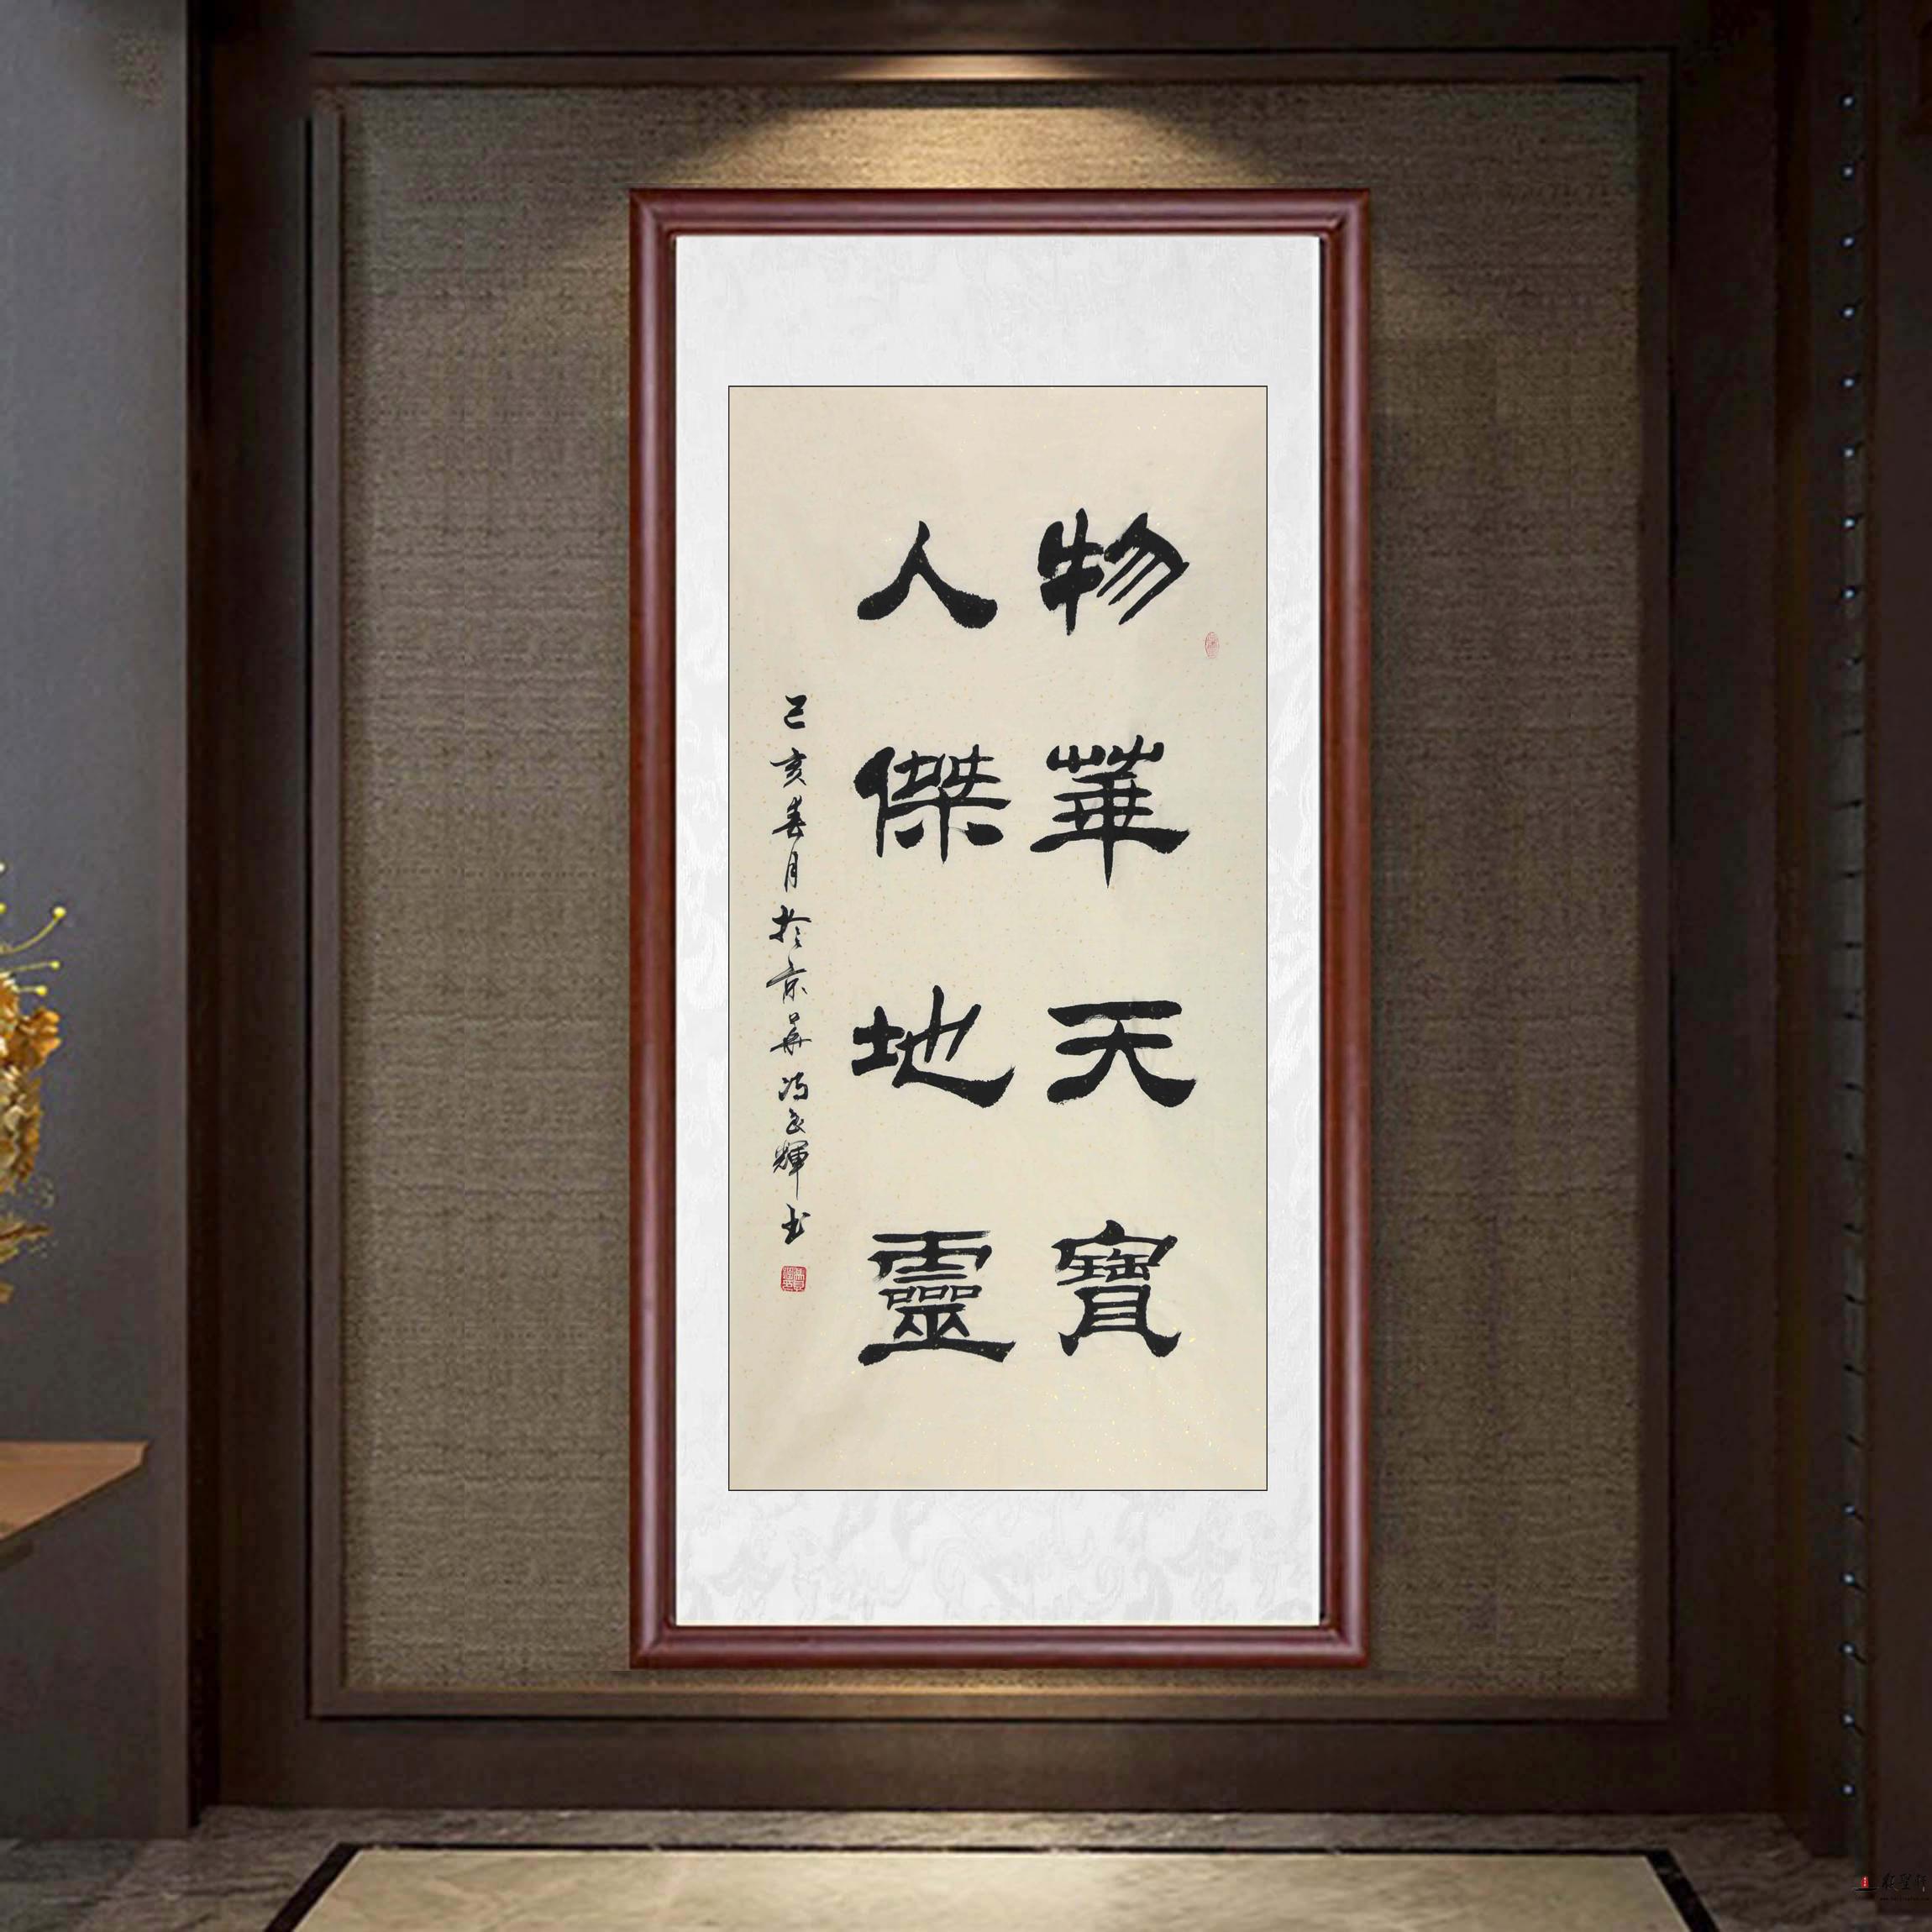 物華天寶
人傑地靈
己亥春月於京華馮文輝书